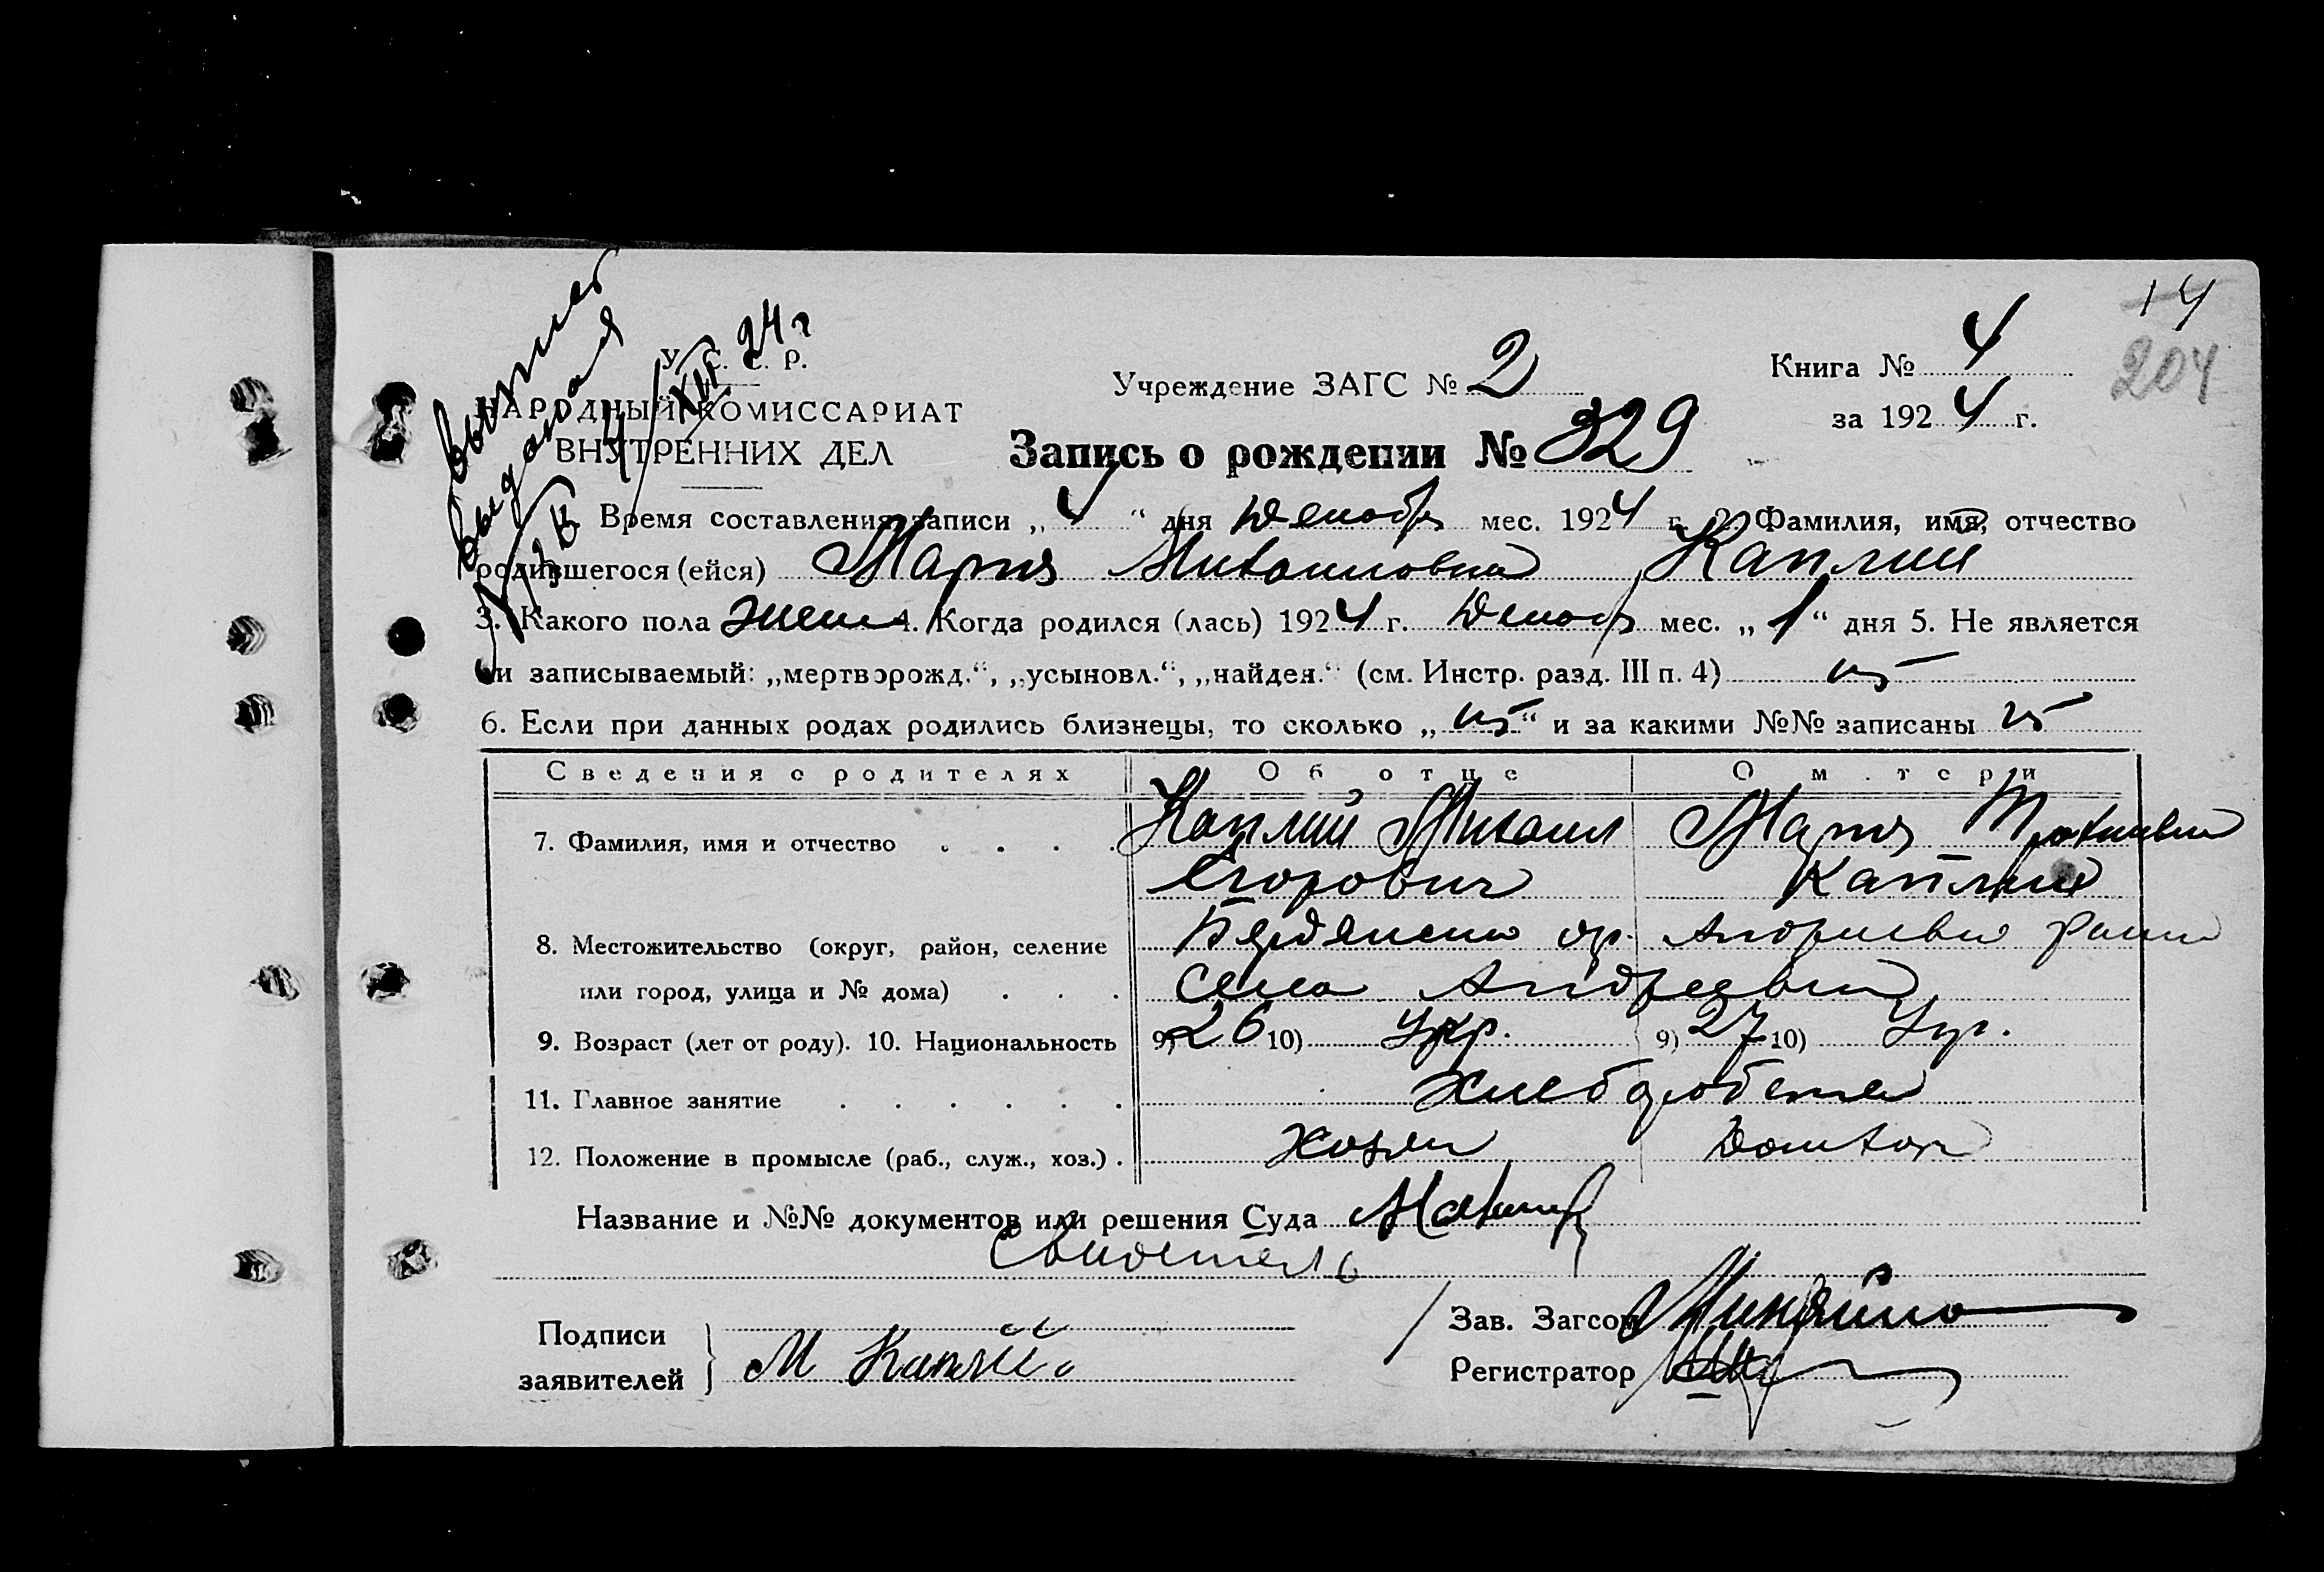 14
204
выпись
выдана
4/XII 24 г
У. С. С. Р.
НАРОДНЫЙ КОМИССАРИАТ
ВНУТРЕННИХ ДЕЛ
Учреждение ЗАГС № 2
Книга № 4
за 1924 г.
Запись о рождении № 329
Время составления записи „4“ дня Декабр мес. 1924 г. 2. Фамилия, имя, отчество
родившегося (ейся) Мария Михайловна Каплий
3. Какого пола женс 4. Когда родился (лась) 1924 г. Декабр мес. „1“ дня 5. Не является
ли записываемый: „мертворожд.“, „усыновл.“, „найден.“ (см. Инстр. разд. III п. 4)
6. Если при данных родах родились близнецы, то сколько „ “ и за какими №№ записаны
Сведения о родителях Об отце О матери
7. Фамилия, имя и отчество . . . . Каплий Михаил Мария
Егорович Каплий
8. Местожительство (округ, район, селение Бердянско ор.
или город, улица и № дома) . . . села Андреевки
9. Возраст (лет от роду). 10. Национальность 9) 26 10) Укр. 9) 27 10) Укр.
11. Главное занятие . . . . . . хлебороб
12. Положение в промысле (раб., служ., хоз.) . хозяин домхоз
Название и №№ документов или решения Суда
Свидетель
Подписи
заявителей М Каплий
Зав. Загсом
Регистратор